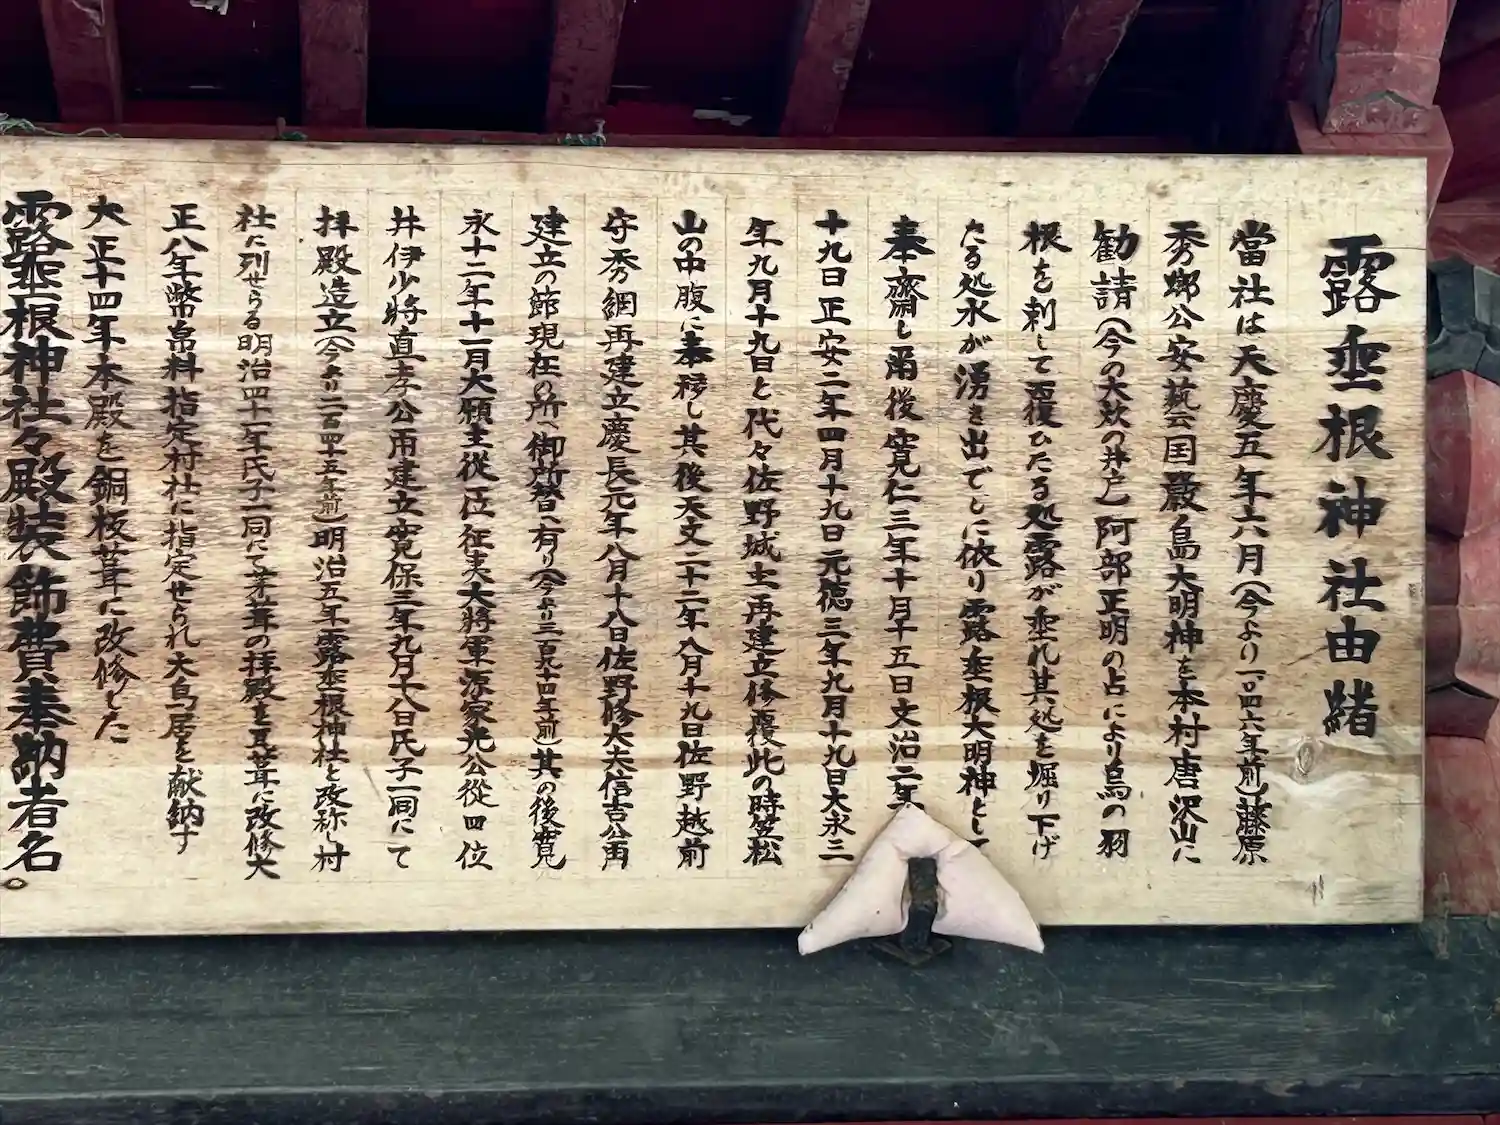 露垂根神社由緒
當社は天慶五年六月(今より一〇四六年前)藤原
秀郷公安藝国嚴島大明神を本村唐沢山に
勧請(今の大炊の井戸)阿部正明の占により鳥の羽
根を刺して覆ひたる処露が垂れ其処を堀り下げ
たる処水が湧き出でしに依り露垂根大明神とし
奉齋し爾後寛仁三年十月十五日文治二年
十九日正安二年四月十九日元徳三年九月十九日大永三
年九月十九日と代々佐野城主再建立修覆此の時笠松
山の中腹に奉移し其後天文二十二年八月十九日佐野越前
守秀綱再建立慶長元年八月十八日佐野修大夫信吉公再
建立の節現在の所へ御所替へ有り(今より三百九十四年前)其の後寛
永十二年十一月大願主從一位征夷大將軍源家光公從四位
井伊少將直孝公再建立寛保三年九月十八日氏子一同にて
拝殿造立(今より二百四十五年前)明治五年露垂根神社と改称し村
社に列せらる明治四十一年氏子一同にて茅葺の拝殿を瓦葺に改修大
正八年幣帛料指定村社に指定せられ大鳥居を献納す
大正十四年本殿を銅板葺に改修した
露垂根神社々殿装飾費奉納者名